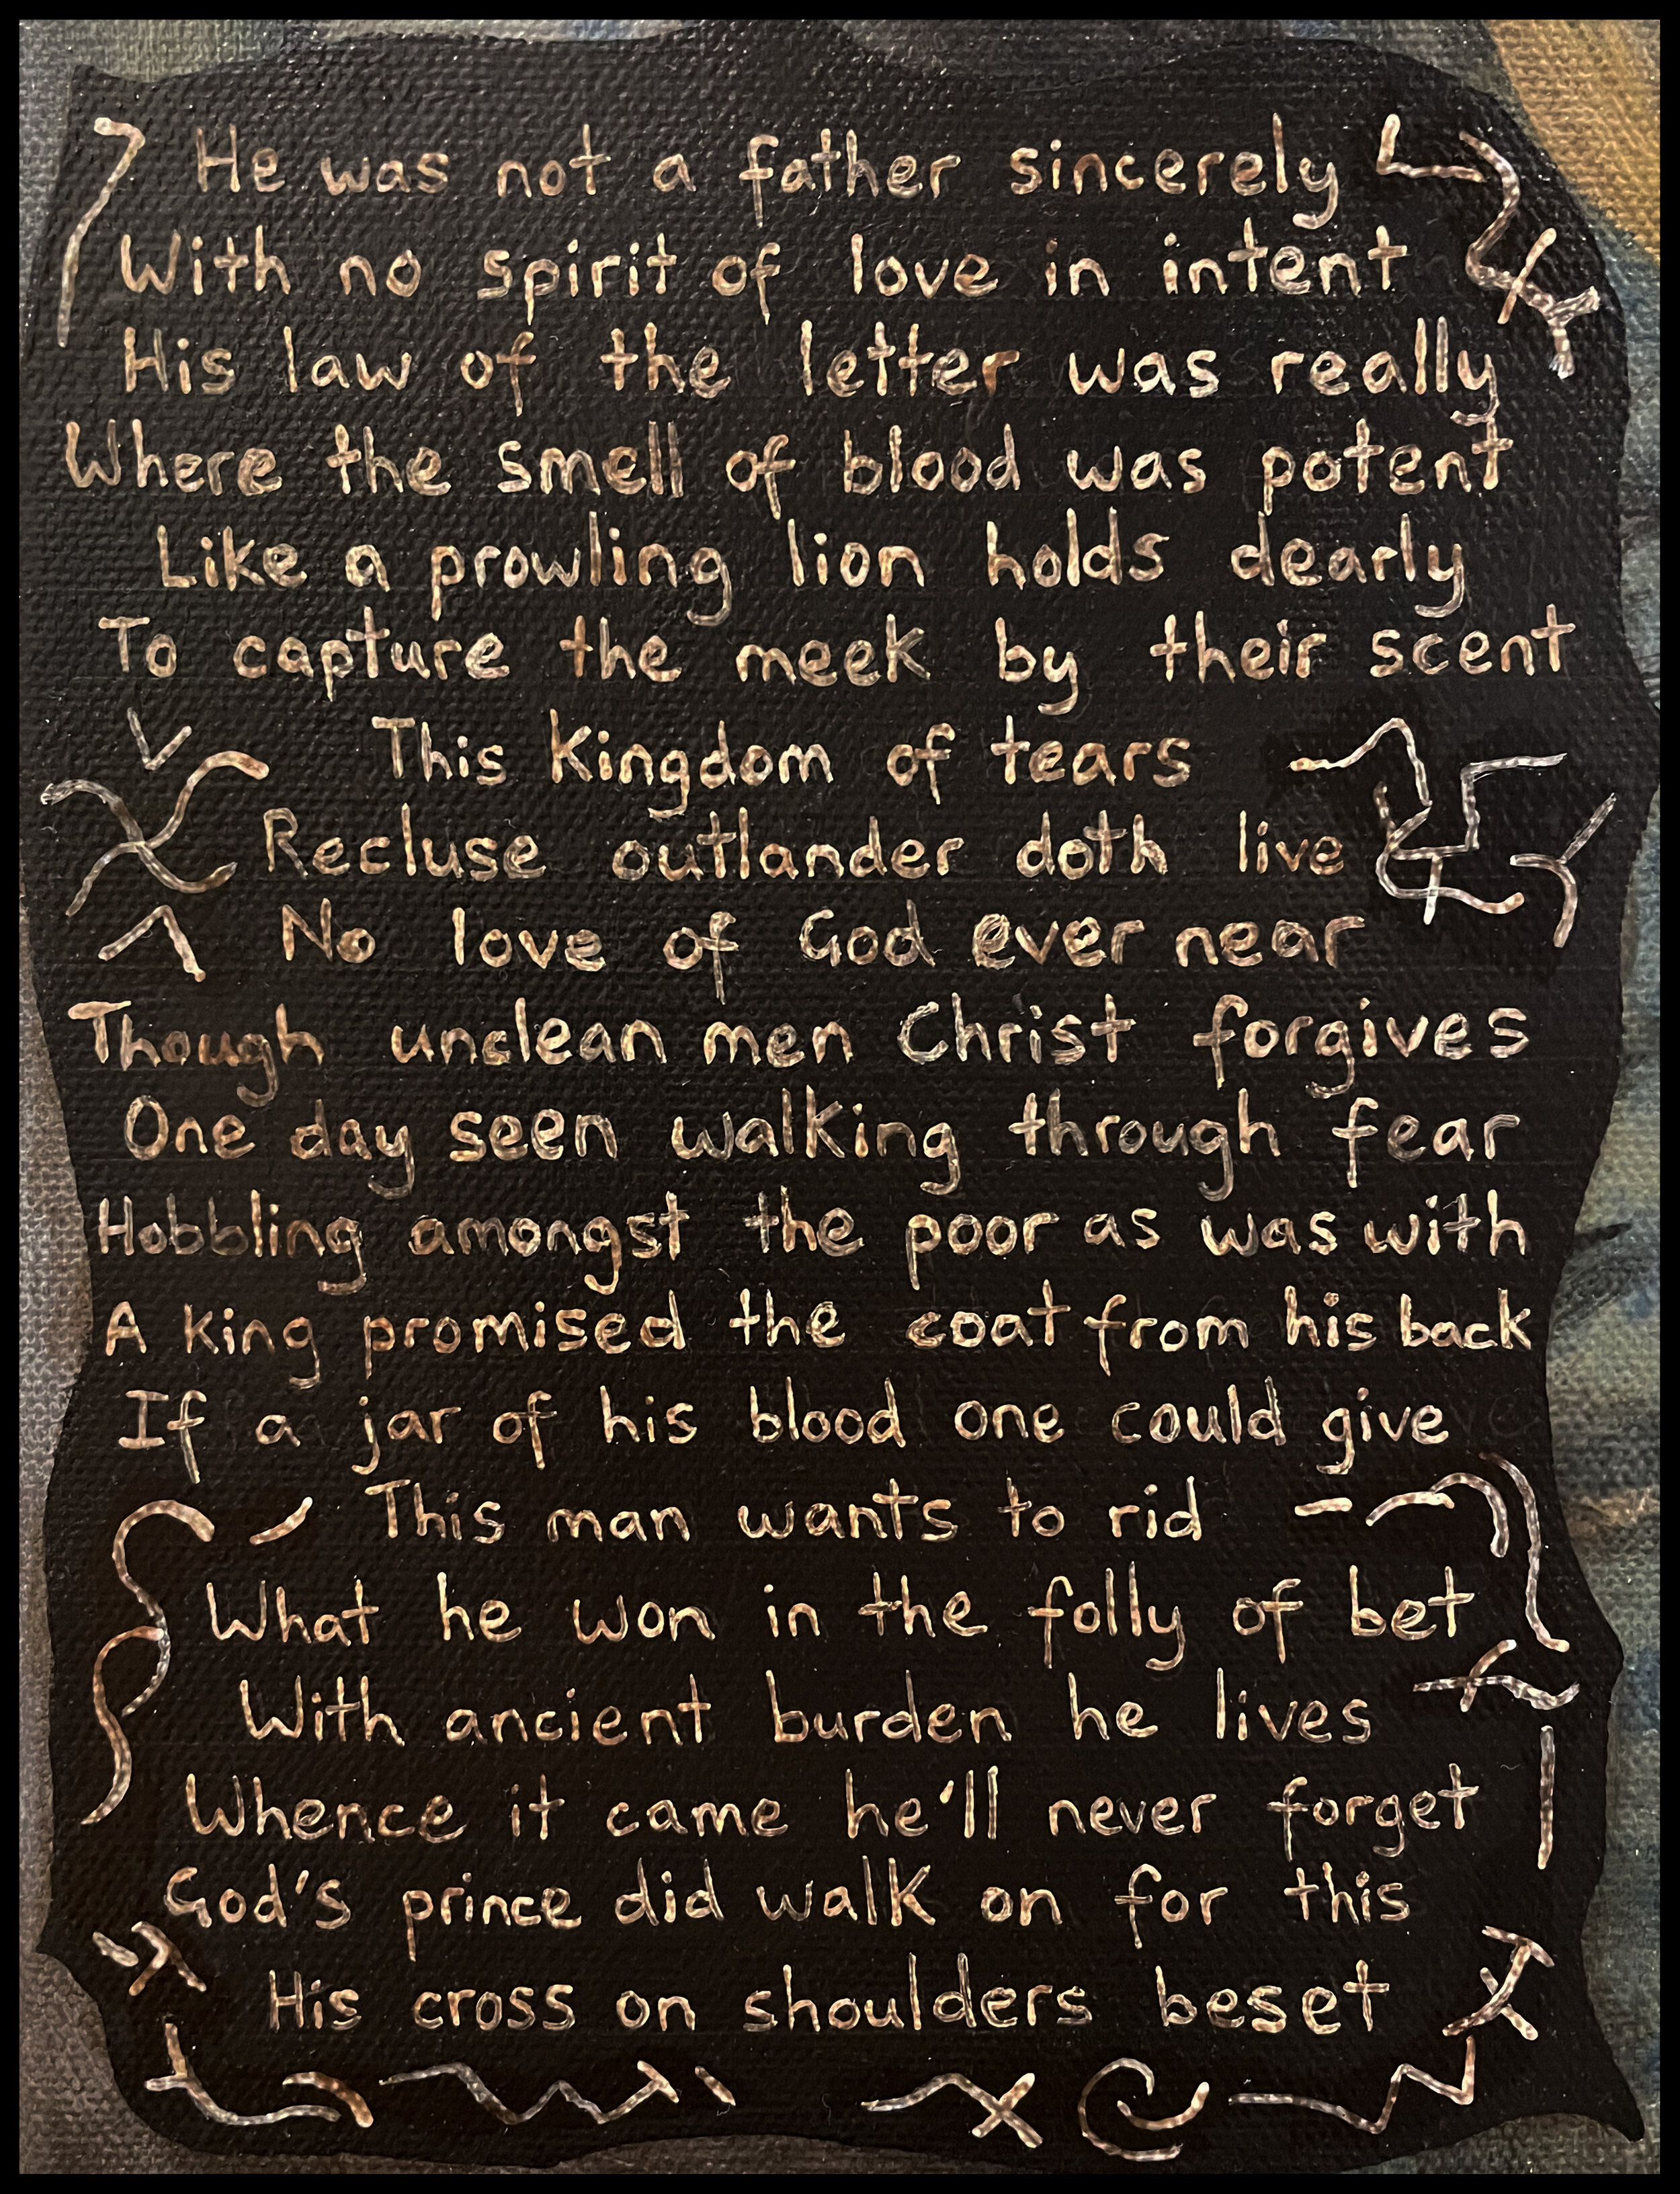 He was not a father sincerely
With no spirit of love in intent
His law of the letter was really
Where the smell of blood was potent
Like a prowling lion holds dearly
To capture the meek by their scent
This kingdom of tears
Recluse outlander doth live
No love of God ever near
Though unclean men Christ forgives
One day seen walking through fear
Hobbling amongst the poor as was with
A king promised the coat from his back
If a jar of his blood one could give
This man wants to rid
What he won in the folly of bet
With ancient burden he lives
Whence it came he'll never forget
God's prince did walk on for this
His cross on shoulders beset